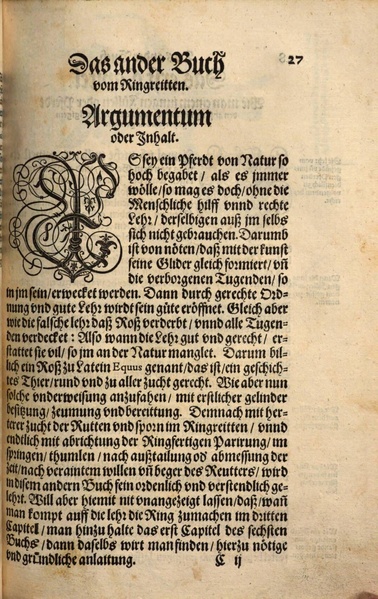 Das ander Buch
27
vom Ringreitten.
Argumentum
oder Inhalt.
ES sey ein Pferdt von Natur so
hoch begabet / als es jmmer
wölle / so mag es doch / ohne die
Menschliche hilff vnnd rechte
Lehr / derselbigen auß jm selbs
sich nicht gebrauchen. Darumb
ist von nöten / daß mit der kunst
seine Glider gleich formiert / vñ
die verborgenen Tugenden / so
in jm sein / erwecket werden. Dann durch gerechte Ord-
nung vnd gute Lehr wirdt sein güte eröffnet. Gleich aber
wie die falsche lehr daß Roß verderbt / vnnd alle Tugen-
den verdecket: Also wann die Lehr gut vnd gerecht / er-
stattet sie vil / so jm an der Natur manglet. Darum bil-
lich ein Roß zu Latein Equus genant / das ist / ein geschich-
tes Thier / rund vnd zu aller zucht gerecht. Wie aber nun
solche vnderweisung anzufahen / mit erstlicher gelinder
besitzung / zeumung vnd bereittung. Demnach mit her-
terer zucht der Rutten vnd sporn im Ringreitten / vnnd
endtlich mit abrichtung der Ringfertigen Parirung / im
springen / thumlen / nach außtailung od' abmessung der
zeit / nach veraintem willen vñ beger des Reutters / wird
in disem andern Buch fein ordenlich vnd verstendlich ge-
lehrt. Will aber hiemit nit vnangezeigt lassen / daß / wañ
man kompt auff die lehr die Ring zumachen im dritten
Capitel / man hinzu halte das erst Capitel des sechsten
Buchs / dann daselbs wirt man finden / hierzu nötige
vnd gründliche anlaittung.
C ij